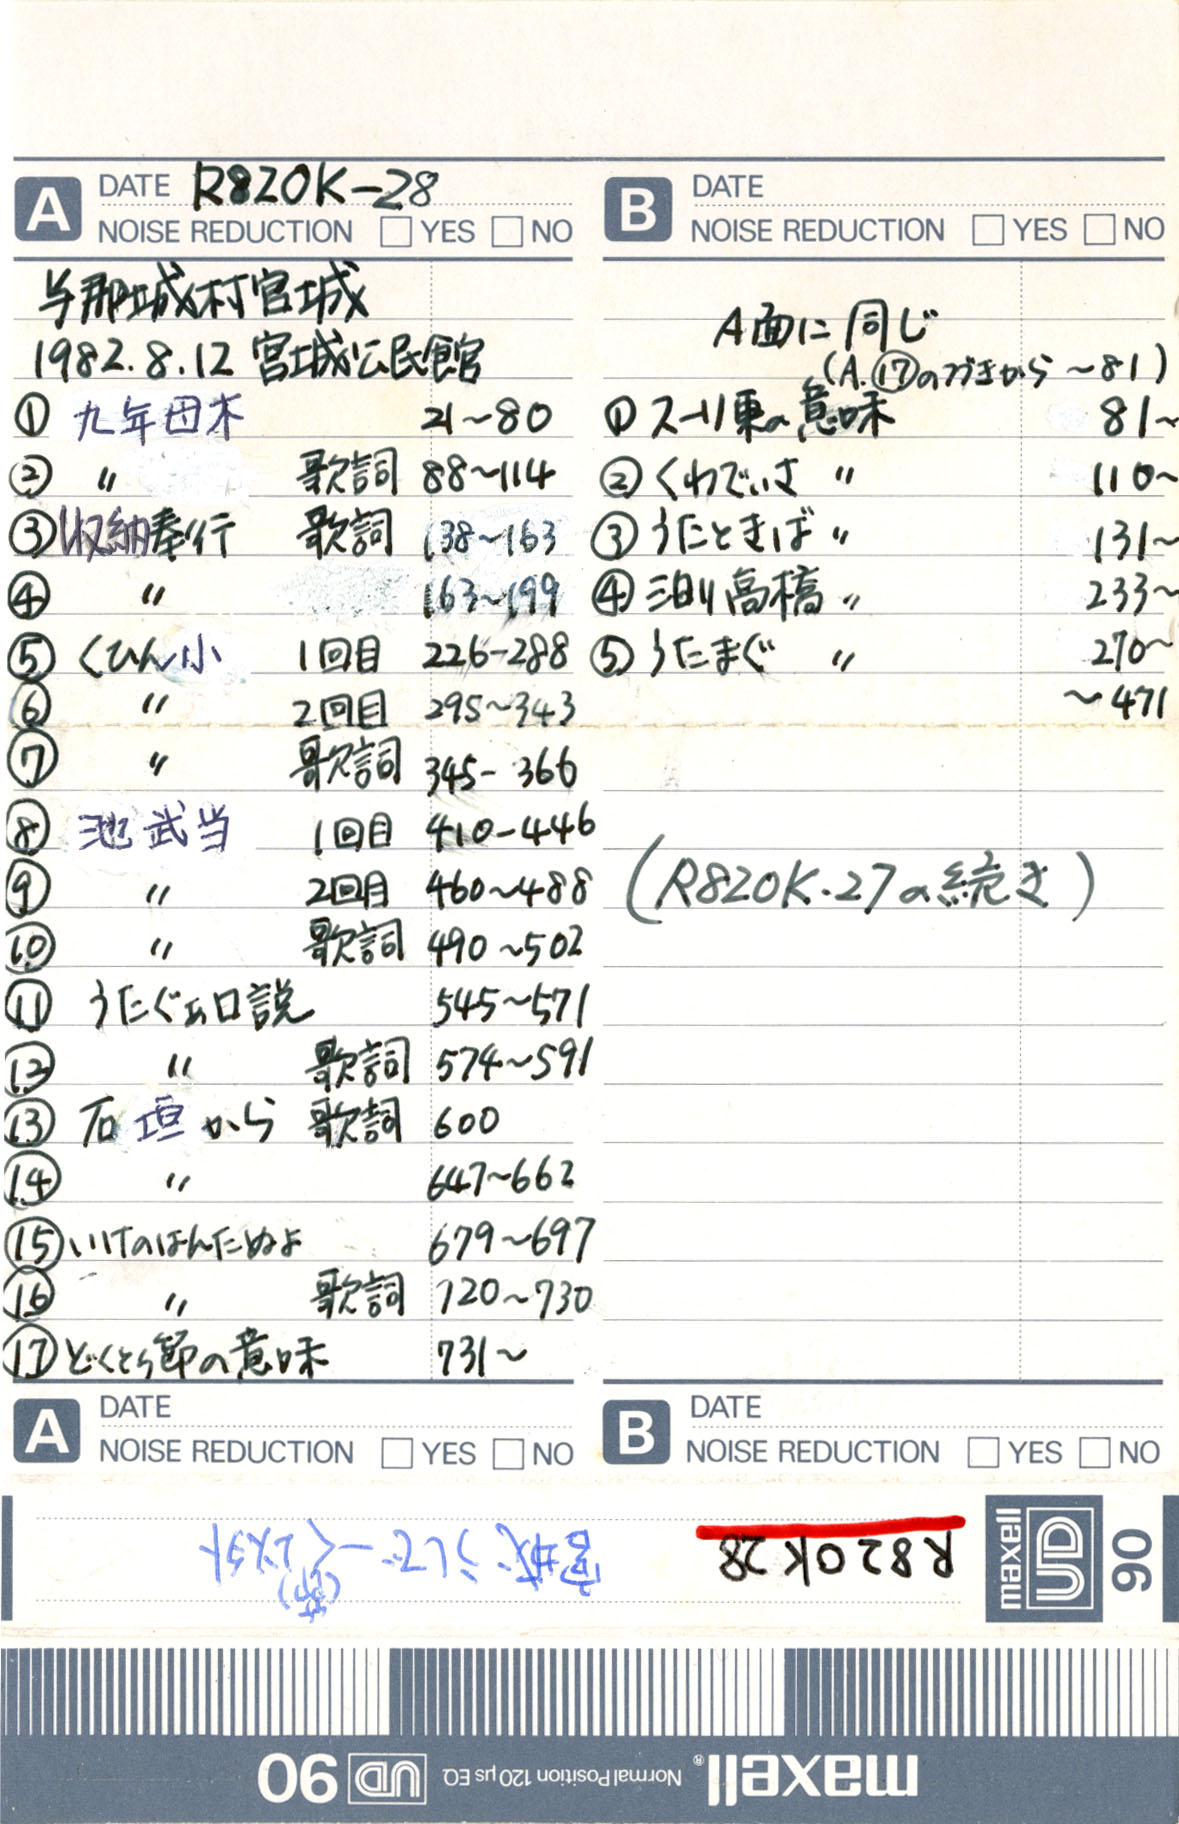 A DATE R820K-28
NOISE REDUCTION □YES □NO
与那城村宮城
1982.8.12 宮城公民館
① 九年田木 21~80
② 〃 歌詞 88~114
③ 収納奉行 歌詞 138~163
④ 〃 163~199
⑤ くひん小 1回目 226-288
⑥ 〃 2回目 295~343
⑦ 〃 歌詞 345-366
⑧ 池武当 1回目 410-446
⑨ 〃 2回目 460~488
⑩ 〃 歌詞 490~502
⑪ うたぐぁ口説 545~571
⑫ 〃 歌詞 574~591
⑬ 石垣から 歌詞 600
⑭ 〃 647~662
⑮ いけのはんたぬよ 679~697
⑯ 〃 歌詞 720~730
⑰ どくとら節の意味 731~
A DATE
NOISE REDUCTION □YES □NO
B DATE
NOISE REDUCTION □YES □NO
A面に同じ
(A.⑰のつづきから ~81)
① スーリ東の意味 81~
② くわでぃさ 〃 110~
③ うたときば 〃 131~
④ 泊り高橋 〃 233~
⑤ うたまぐ 〃 270~
~471
(R820K.27の続き)
B DATE
NOISE REDUCTION □YES □NO
R820K28
宮城
(節)
maxell
UD
90
maxell® Normal Position 120 μs EQ UD 90